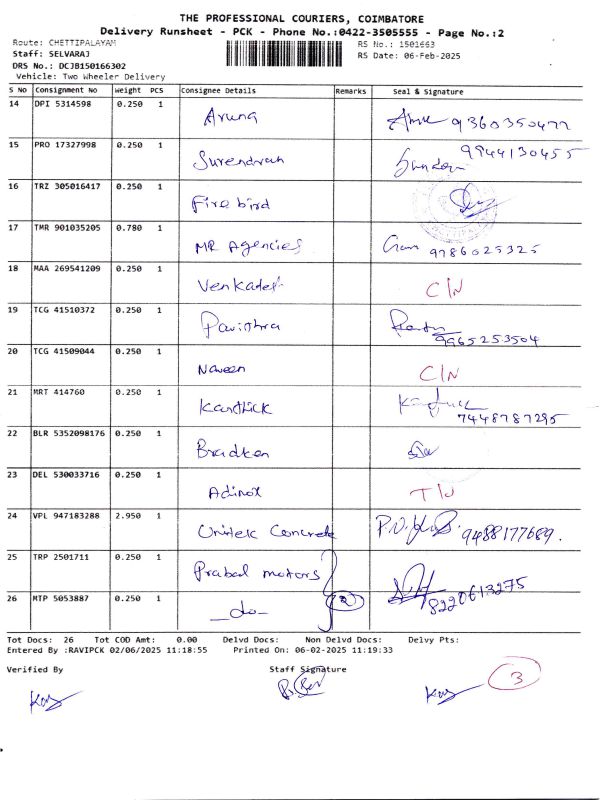 THE PROFESSIONAL COURIERS, COIMBATORE
Delivery Runsheet - PCK - Phone No.:0422-3505555 - Page No.:2
Route: CHETTIPALAYAM RS No.: 1501663
Staff: SELVARAJ RS Date: 06-Feb-2025
DRS No.: DCJB150166302
Vehicle: Two Wheeler Delivery
S No Consignment No Weight PCS Consignee Details Remarks Seal & Signature
14 DPI 5314598 0.250 1 Aruna 9360350477
15 PRO 17327998 0.250 1 Surendran 9944130455
16 TRZ 305016417 0.250 1 Fire bird
17 TMR 901035205 0.780 1 MR Agencies 9786025325
18 MAA 269541209 0.250 1 Venkatesh C/N
19 TCG 41510372 0.250 1 Pavithra 9965253504
20 TCG 41509044 0.250 1 Naveen C/N
21 MRT 414760 0.250 1 Karthick 7448787295
22 BLR 5352098176 0.250 1 Bradken
23 DEL 530033716 0.250 1 Adinox
24 VPL 947183288 2.950 1 Unitek Concrete 9488177689.
25 TRP 2501711 0.250 1 Prabal motors
26 MTP 5053887 0.250 1 -do- 2 8220613275
Tot Docs: 26 Tot COD Amt: 0.00 Delvd Docs: Non Delvd Docs: Delvy Pts:
Entered By :RAVIPCK 02/06/2025 11:18:55 Printed On: 06-02-2025 11:19:33
Verified By Staff Signature
3